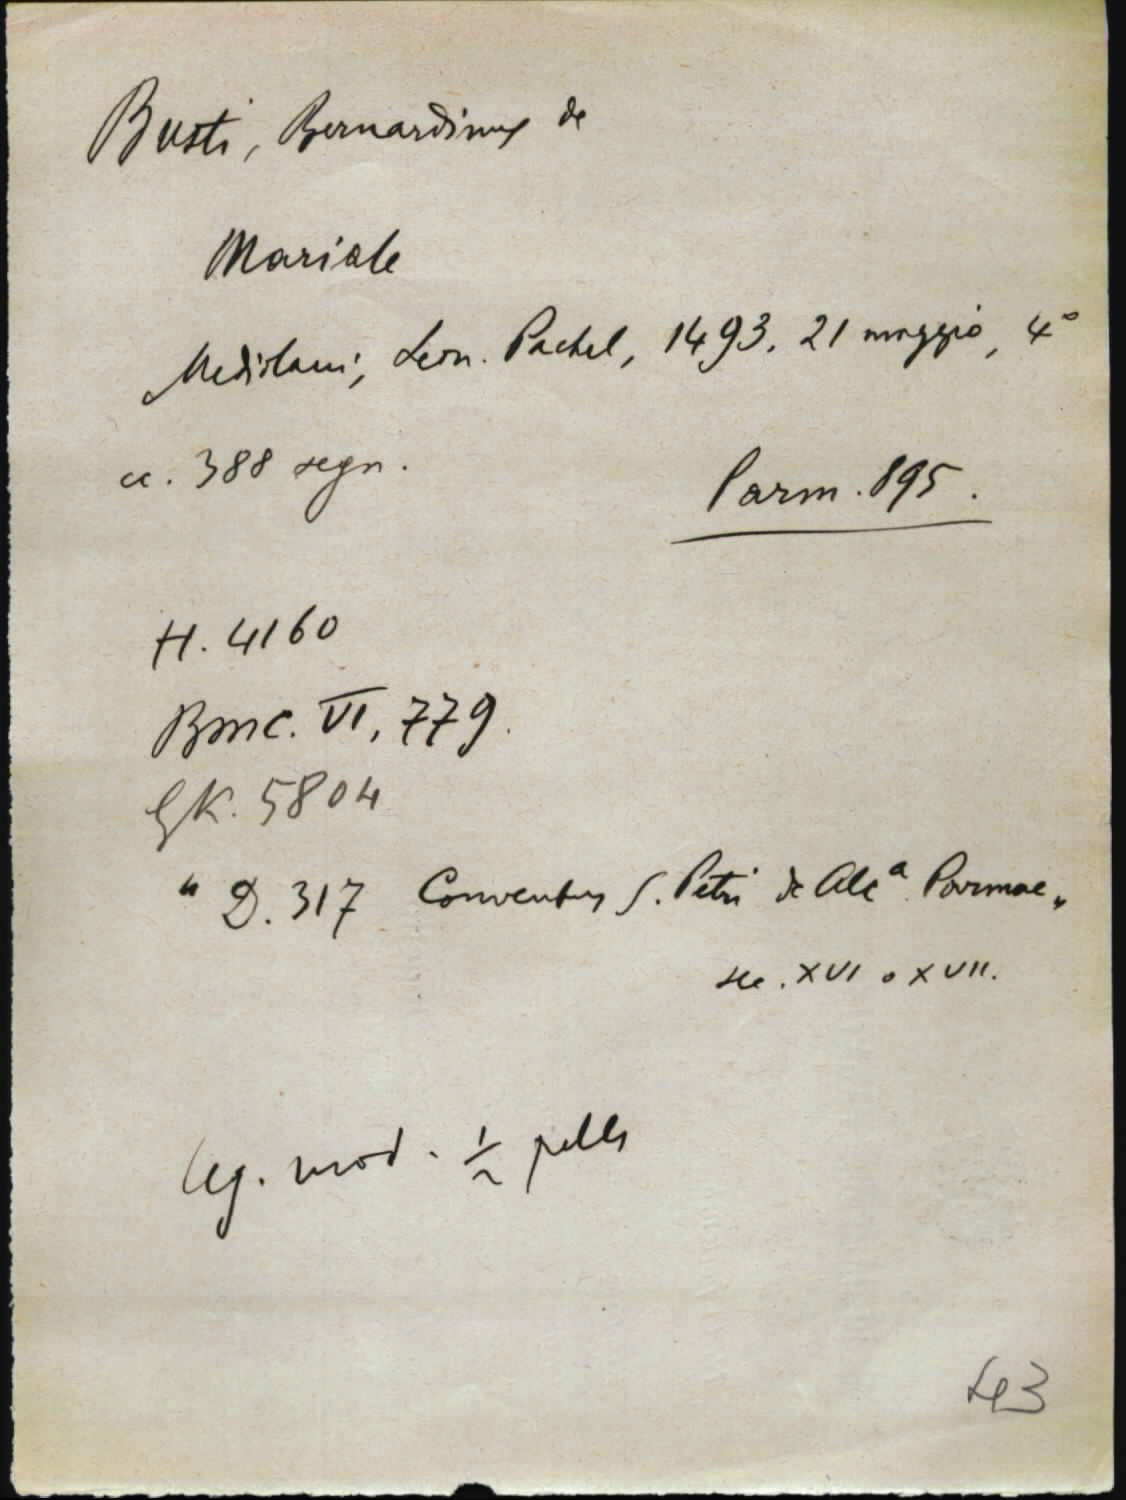 Busti, Bernardinus de
Mariale
Mediolani, Leon. Pachel, 1493, 21 maggio, 4°
cc. 388 segn.
Parm. 895.
H. 4160
BMC. VI, 779.
GK. 5804
"D. 317 Conventus S. Petri de Alc.a Parmae"
sec. XVI o XVII.
Leg. mod. ½ pelle
43